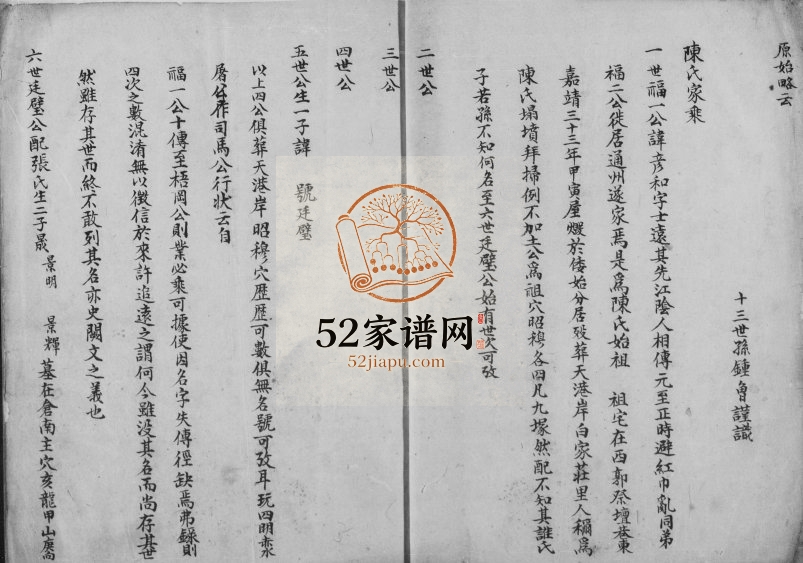 原始略云
十三世孫鍾會謹識
陳氏家乘
一世福一公諱彥和字士遠其先江陰人相傳元至正時避紅巾亂同弟
福二公徙居通州遂家焉是爲陳氏始祖 祖宅在西郭祭壇巷東
嘉靖三十三年甲寅屋燬於倭始分居歿葬天港岸白家莊里人稱爲
陳氏塌墳拜掃例不加土公爲祖穴昭穆各四凡九塚然配不知其誰氏
子若孫不知何名至六世廷璧公始有世次可攷
二世公
三世公
四世公
五世公生一子諱 號廷璧
以上四公俱葬天港岸昭穆穴歷歷可數俱無名號可攷耳玩四明
屠公作司馬公行狀云自
福一公十傳至梧岡公則業必乘可據使因名字失傳徑缺焉弗錄則
四次之數混淆無以徵信於來許追遠之謂何今雖没其名而尚存其世
然雖存其世而終不敢列其名亦史闕文之義也
六世廷璧公配張氏生二子晟 景明 景輝 墓在倉南主穴亥龍甲山
52家谱网
52jiapu.com